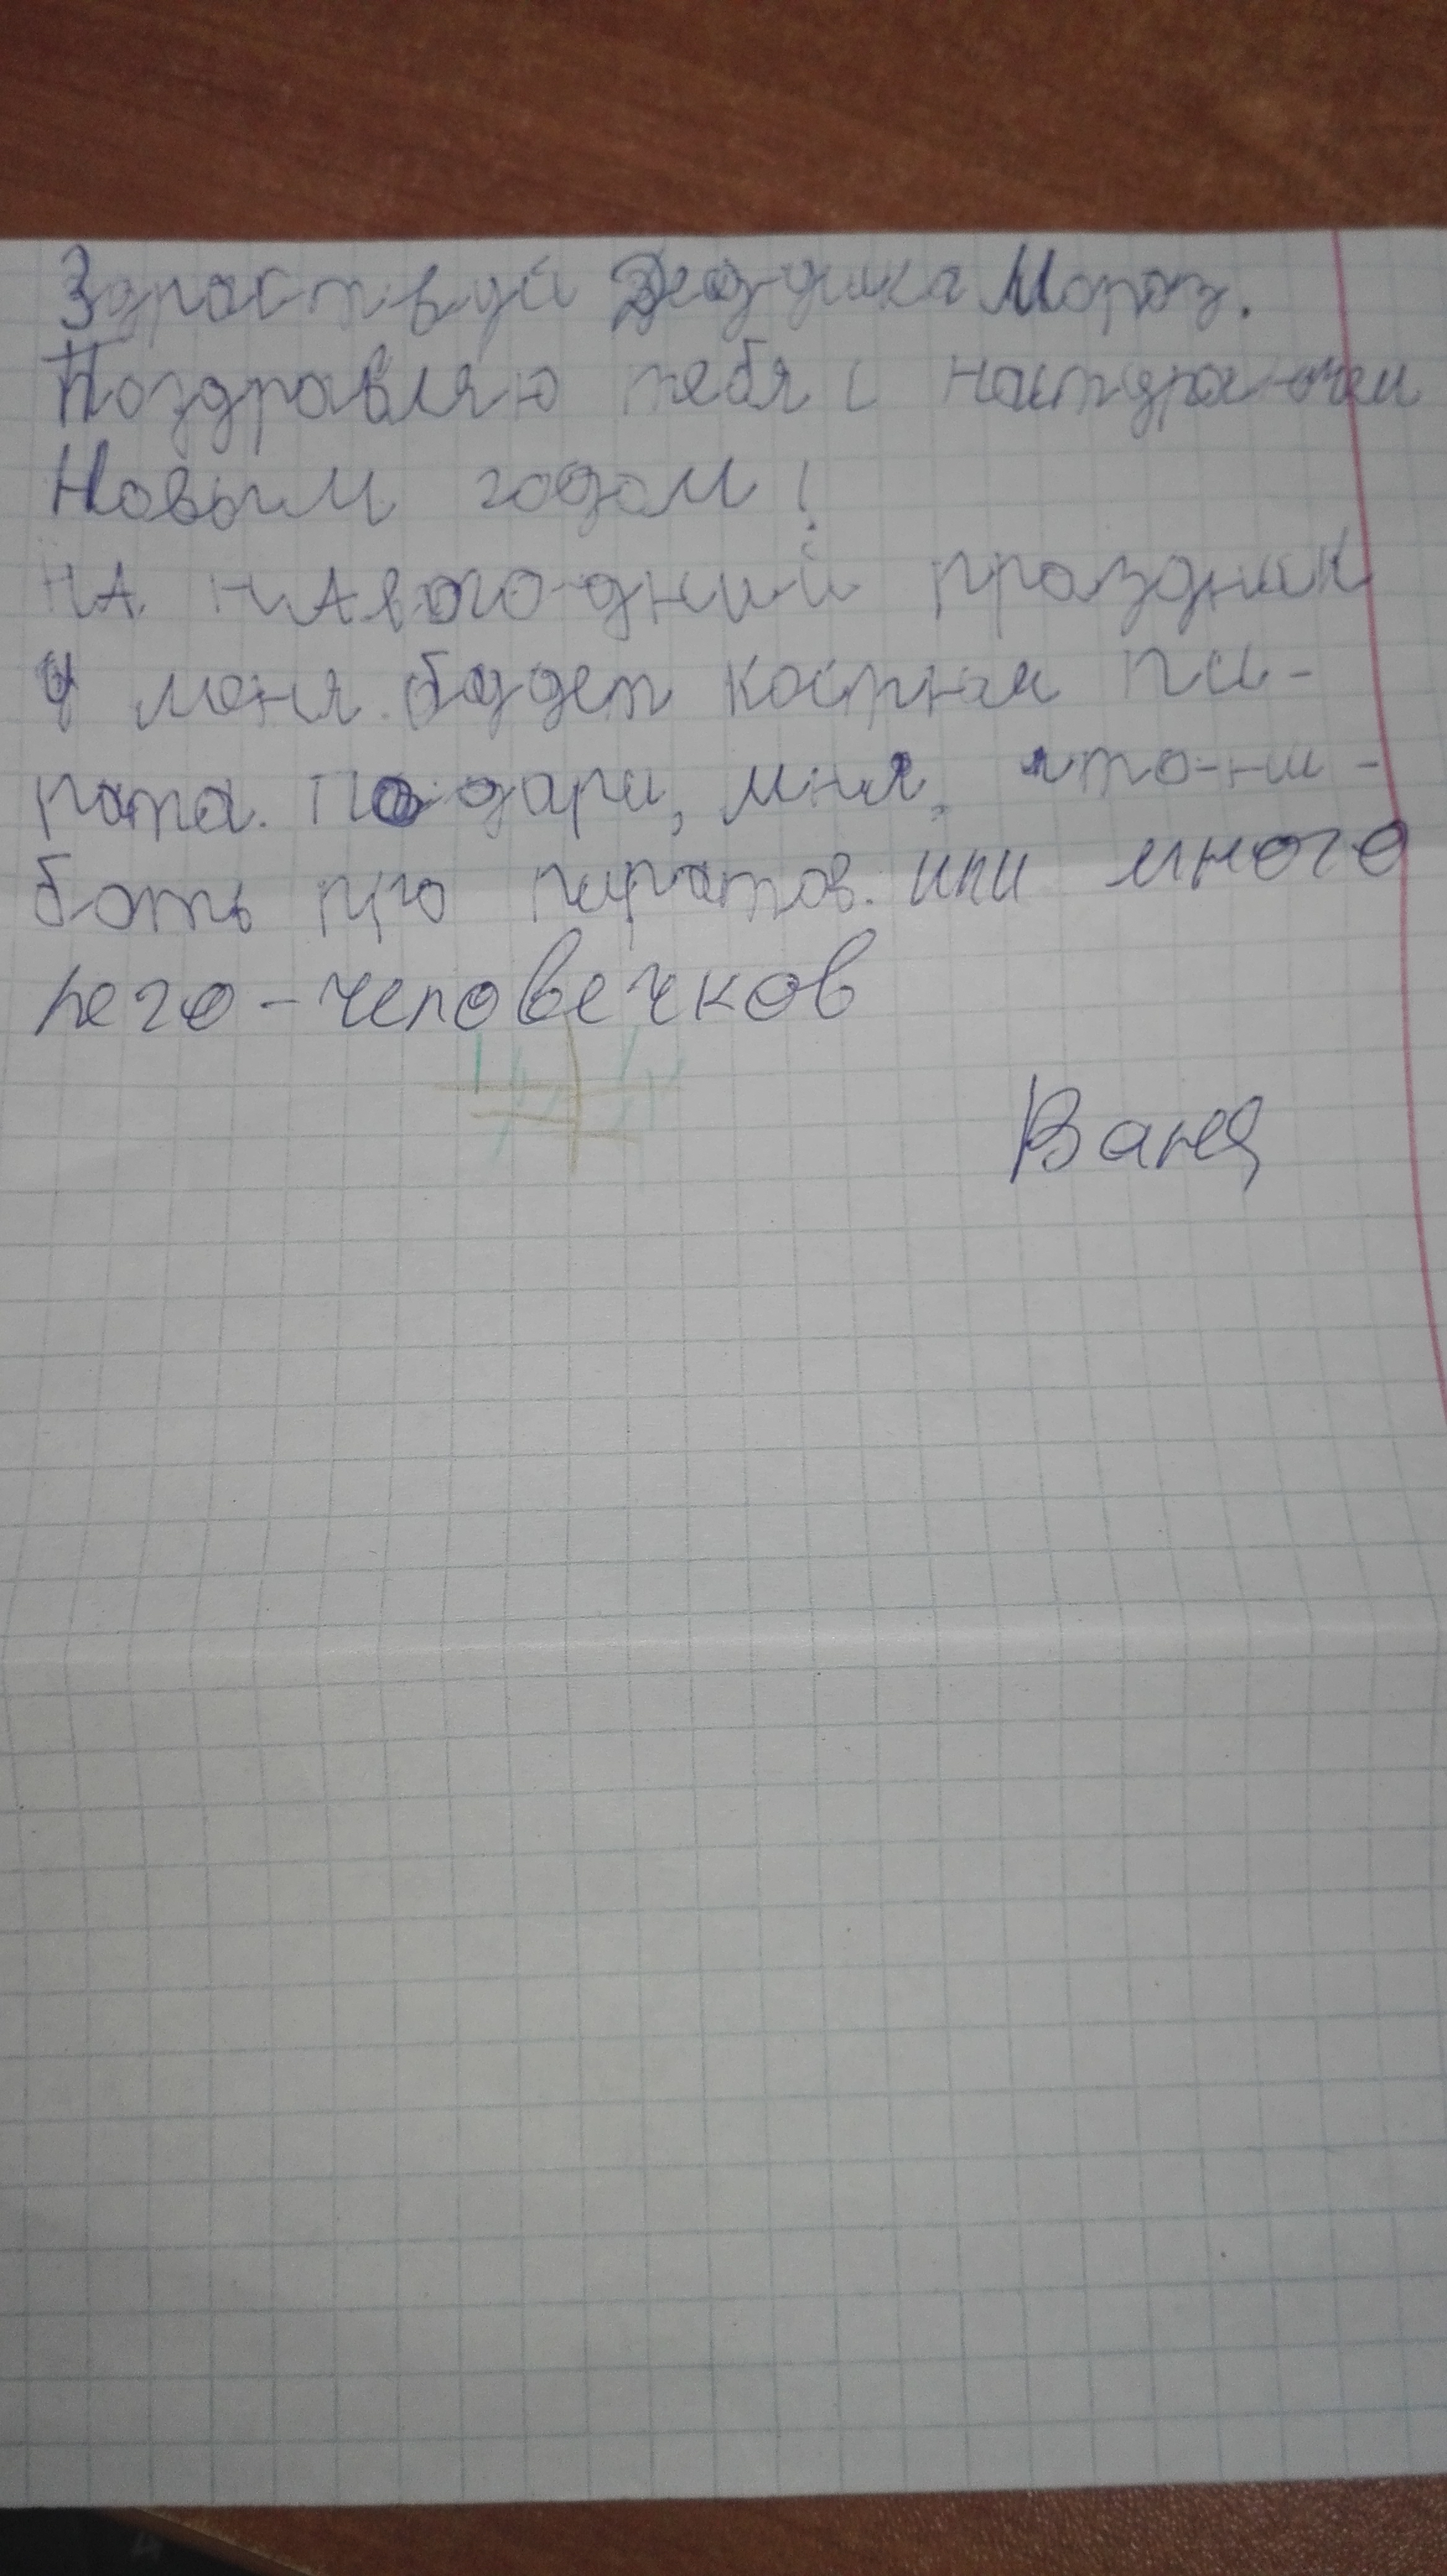 Здраствуй Дедушка Мороз.
Поздравляю тебя с
Новым годом!
НА нАвогодний праздник
у меня будет костюм пи-
рата. Подари, мня, что-ни-
боть про пиратов. или много
лего-человечков
Ваня